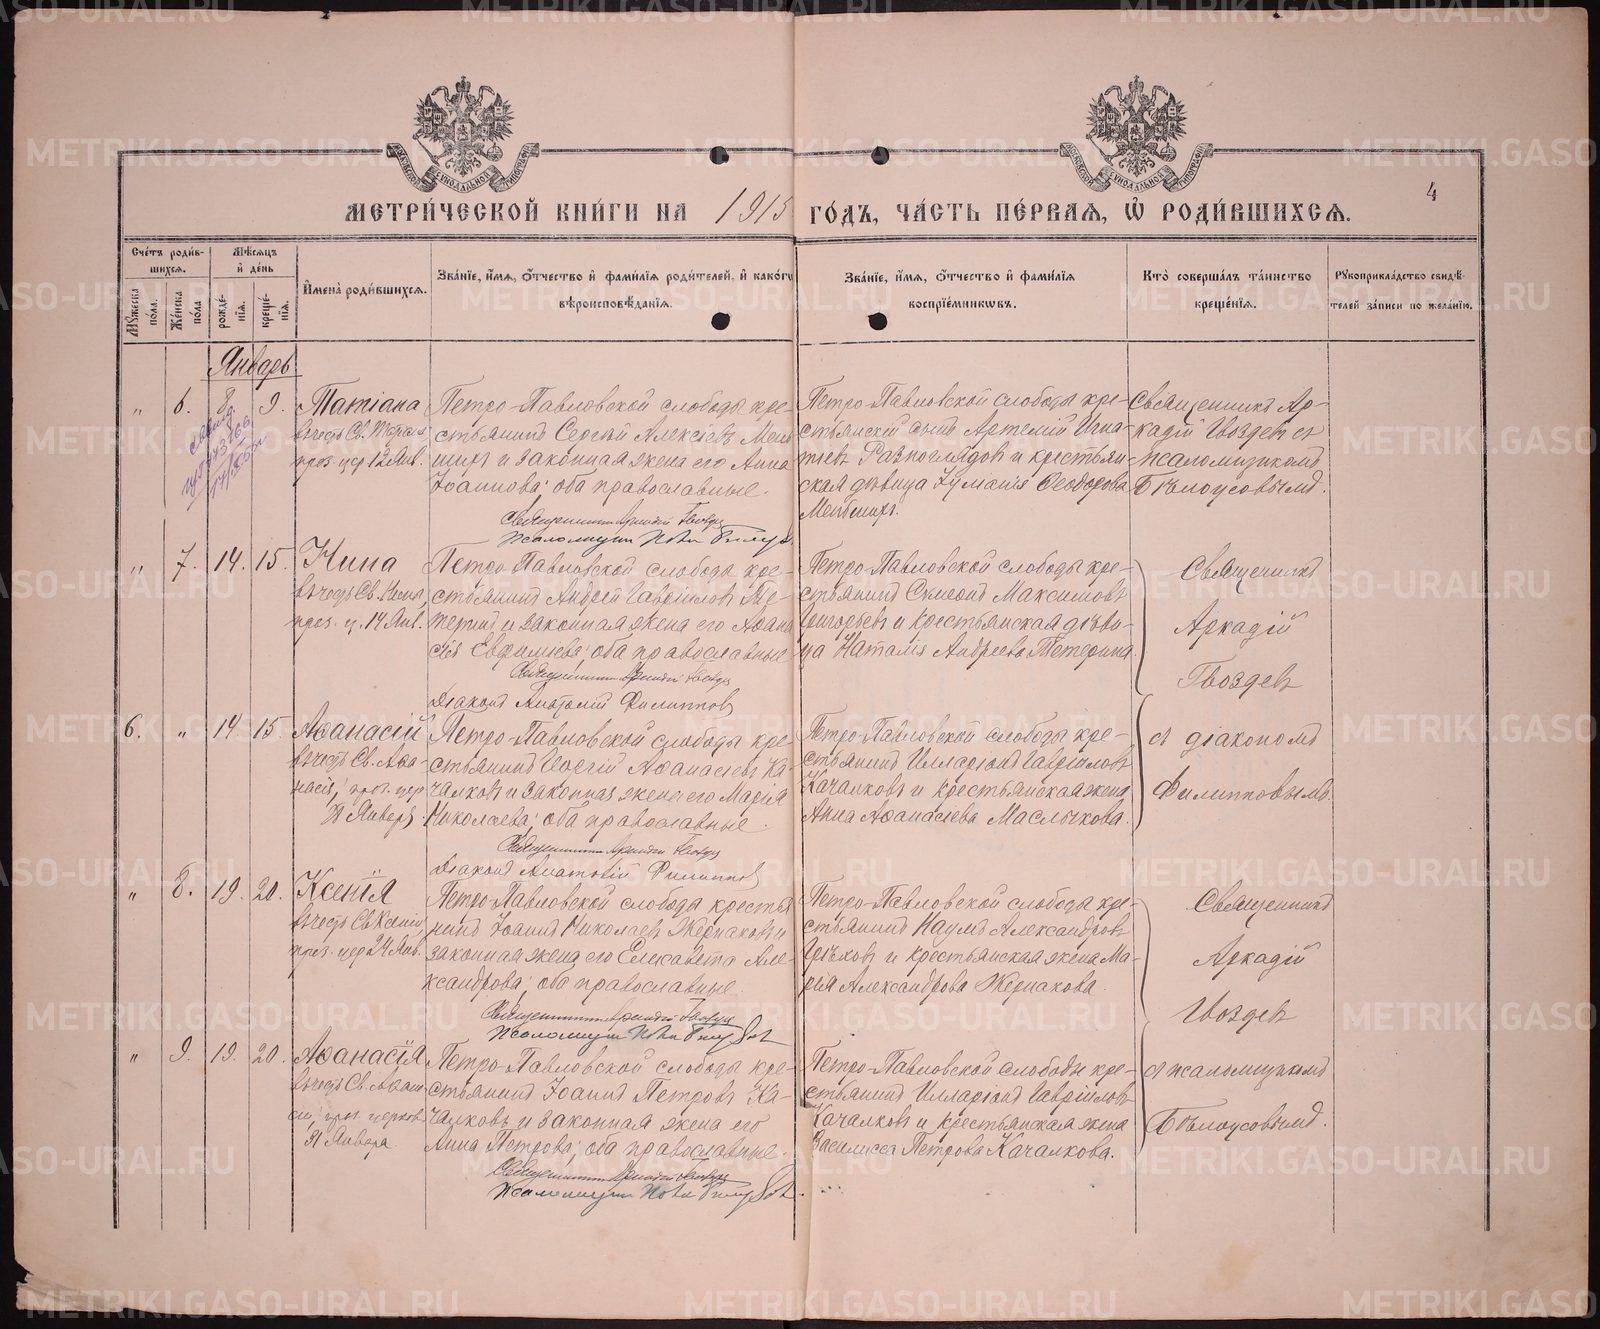 МЕТРИ́ЧЕСКОЙ КНИ́ГИ НА 1913 ГО́ДЪ, ЧА́СТЬ ПЕ́РВАЯ, Ѡ҆ РОДИ́ВШИХСЯ.
4
Сче́тъ роди́в-
шихся.
Мꙋ́жеска по́ла.
Же́нска по́ла
Мѣ́сяцъ
и҆ де́нь
рожде́-
нїя.
креще́-
нїя.
И҆мена̀ роди́вшихся.
Зва́нїе, и҆́мя, ѻ҆́тчество и҆ фами́лїя роди́телей, и҆ како́гѡ
вѣроисповѣ́данїя.
Зва́нїе, и҆́мя, ѻ҆́тчество и҆ фами́лїя
воспрїе́мникѡвъ.
Кто̀ соверша́лъ та́инство
креще́нїя.
Рꙋкоприкла́дство свидѣ́-
телей за́писи по жела́нїю.
Январь
"
6.
8.
9.
Татіана
въ честь Св.
праз. цер 12 Янв.
Петро-Павловской слободы кре-
стьянинъ Сергій Алексіевъ Мень
шихъ и законная жена его Анна
Іоаннова; оба православные.
Священникъ Аркадій Гвоздевъ
Псаломщикъ
Петро-Павловской слободы кре-
стьянскій сынъ Артемій Игна-
тіевъ Разноглядовъ и крестьян-
ская дѣвица Іуліанія Ѳеодорова
Меньшихъ.
Священникъ Ар-
кадій Гвоздевъ съ
псаломщикомъ
Бѣлоусовымъ.
"
7.
14.
15.
Нина
въ честь Св. Нины,
праз. ц. 14 Янв.
Петро-Павловской слободы кре-
стьянинъ Андрей Гавріиловъ Те-
теринъ и законная жена его Аѳана
сія Евфиміева; оба православные
Священникъ Аркадій Гвоздевъ
Діаконъ Анатолій Филипповъ
Петро-Павловской слободы кре-
стьянинъ Симеонъ Максимовъ
Григорьевъ и крестьянская дѣви-
ца Наталія Андреева Тетерина.
Священникъ
Аркадій
Гвоздевъ
6.
"
14
15.
Аѳанасій
въ честь Св. Аѳа-
насія; праз. цер
Января.
Петро-Павловской слободы кре-
стьянинъ Георгій Аѳанасіевъ Ка-
чалковъ и законная жена его Марія
Николаева; оба православные.
Священникъ Аркадій Гвоздевъ
Діаконъ Анатолій Филипповъ
Петро-Павловской слободы кре-
стьянинъ Илларіонъ Гавріиловъ
Качалковъ и крестьянская жена
Анна Аѳанасіева Маслыкова.
съ діакономъ
Филипповымъ.
"
8.
19.
20.
Ксенія
въ честь Св. Ксеніи
праз. цер 24 Янв.
Петро-Павловской слободы крестья
нинъ Іоаннъ Николаевъ Жернаковъ и
законная жена его Елисавета Але-
ксандрова; оба православные.
Священникъ Аркадій Гвоздевъ
Псаломщикъ
Петро-Павловской слободы кре-
стьянинъ Наумъ Александровъ
и крестьянская жена Ма-
рія Александрова Жернакова.
Священникъ
Аркадій
Гвоздевъ
"
9.
19.
20.
Аѳанасія
въ честь Св. Аѳана-
сіи; праз. церков.
Января
Петро-Павловской слободы кре-
стьянинъ Іоаннъ Петровъ Ка-
чалковъ и законная жена его
Анна Петрова; оба православные.
Священникъ Аркадій Гвоздевъ
Псаломщикъ
Петро-Павловской слободы кре-
стьянинъ Илларіонъ Гавріиловъ
Качалковъ и крестьянская жена
Василисса Петрова Качалкова.
съ псаломщикомъ
Бѣлоусовымъ.
METRIKI.GASO-URAL.RU